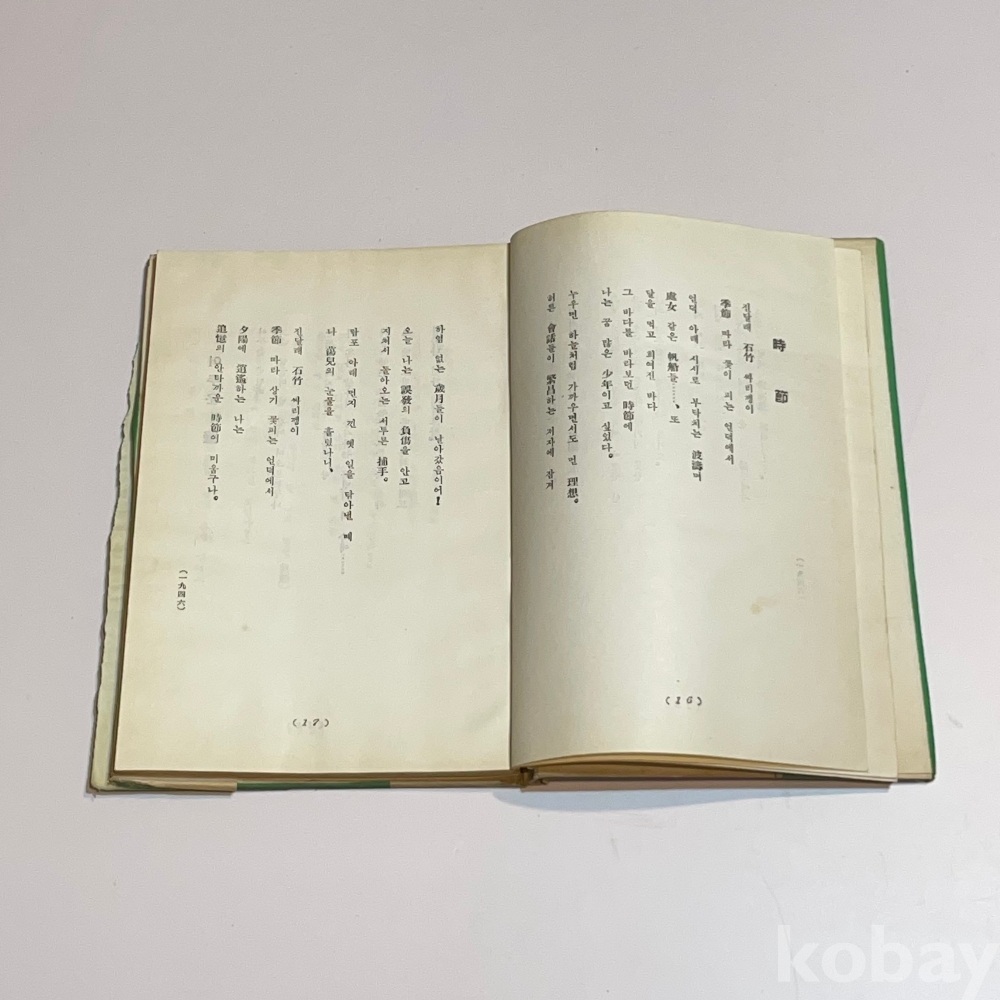 時節
진달래 石竹 싸리꽹이
季節 따라 꽃이 피는 언덕에서
언덕 아래 시시로 부닥치는 波濤며
處女 같은 帆船들……、또
달을 먹고 희여진 바다
그 바다를 바라보던 時節에
나는 꿈 많은 少年이고 싶었다。
누우면 하늘처럼 가까우면서도 먼 理想。
허튼 會話들이 繁昌하는 저자에 잠겨
(16)
하염 없는 歲月들이 날아갔음이어!
오늘 나는 誤發의 負傷을 안고
지쳐서 돌아오는 서투른 捕手。
람포 아래 먼지 낀 옛 일을 닦아낼 때
나 蕩兒의 눈물을 흘렸나니、……
진달래 石竹 싸리꽹이
季節 따라 상기 꽃피는 언덕에서
夕陽에 逍遙하는 나는
追憶의 안타까운 時節이 미웁구나。
(一九四六)
(17)
kobay